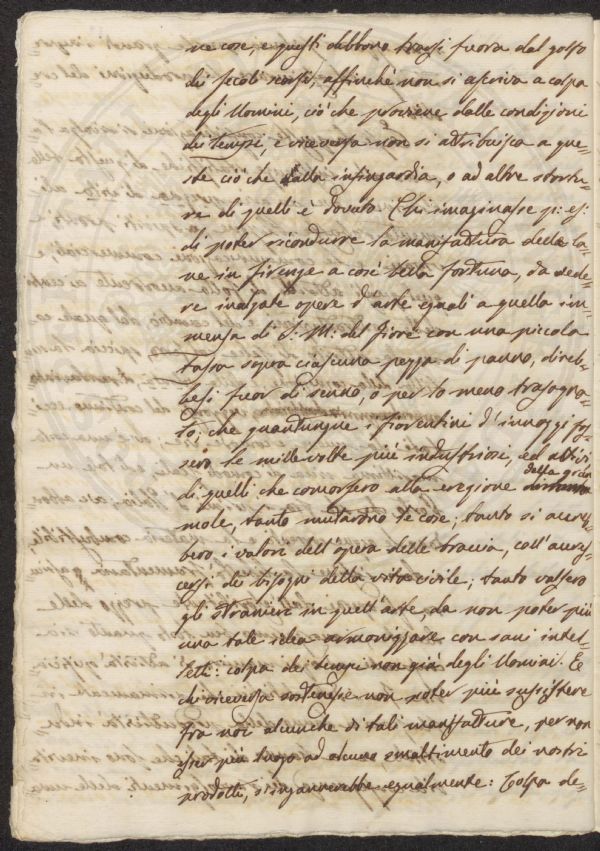 ne cose, e questi debbono trarsi fuora dal golfo
dei secoli scorsi, affinchè non si ascriva a colpa
degli Uomini, ciò che proviene dalle condizioni
dei tempi, e viceversa non si attribuisca a que=
ste ciò che dalla infingardia, o ad altre stortu=
re di quelli è dovuto. Chi imaginasse p: es:
di poter ricondurre la manifattura delle la=
ne in firenze a così bella fortuna, da vede=
re inalzate opere d'arte eguali a quella im=
mensa di S: M: del fiore con una piccola
tassa sopra ciascuna pezza di panno, direb=
besi fuor di senno, o per lo meno trasogna=
to; che quantunque i fiorentini d'innoggi fos=
sero le mille volte più industriosi, ed attivi
di quelli che concorsero alla erezione della gran
mole, tanto mutarono le cose; tanto si accreb=
bero i valori dell'opera delle braccia, coll'accre=
scersi dei bisogni della vita civile; tanto valsero
gli stranieri in quell'arte, da non poter più
una tale idea armonizzare con sani intel=
letti: colpa dei tempi non già degli Uomini. E
chi viceversa sostenesse non poter più sussistere
fra noi alcunche di tali manifatture, per non
esser più luogo ad alcuno smaltimento dei nostri
prodotti, s'ingannerebbe egualmente: Colpa de=